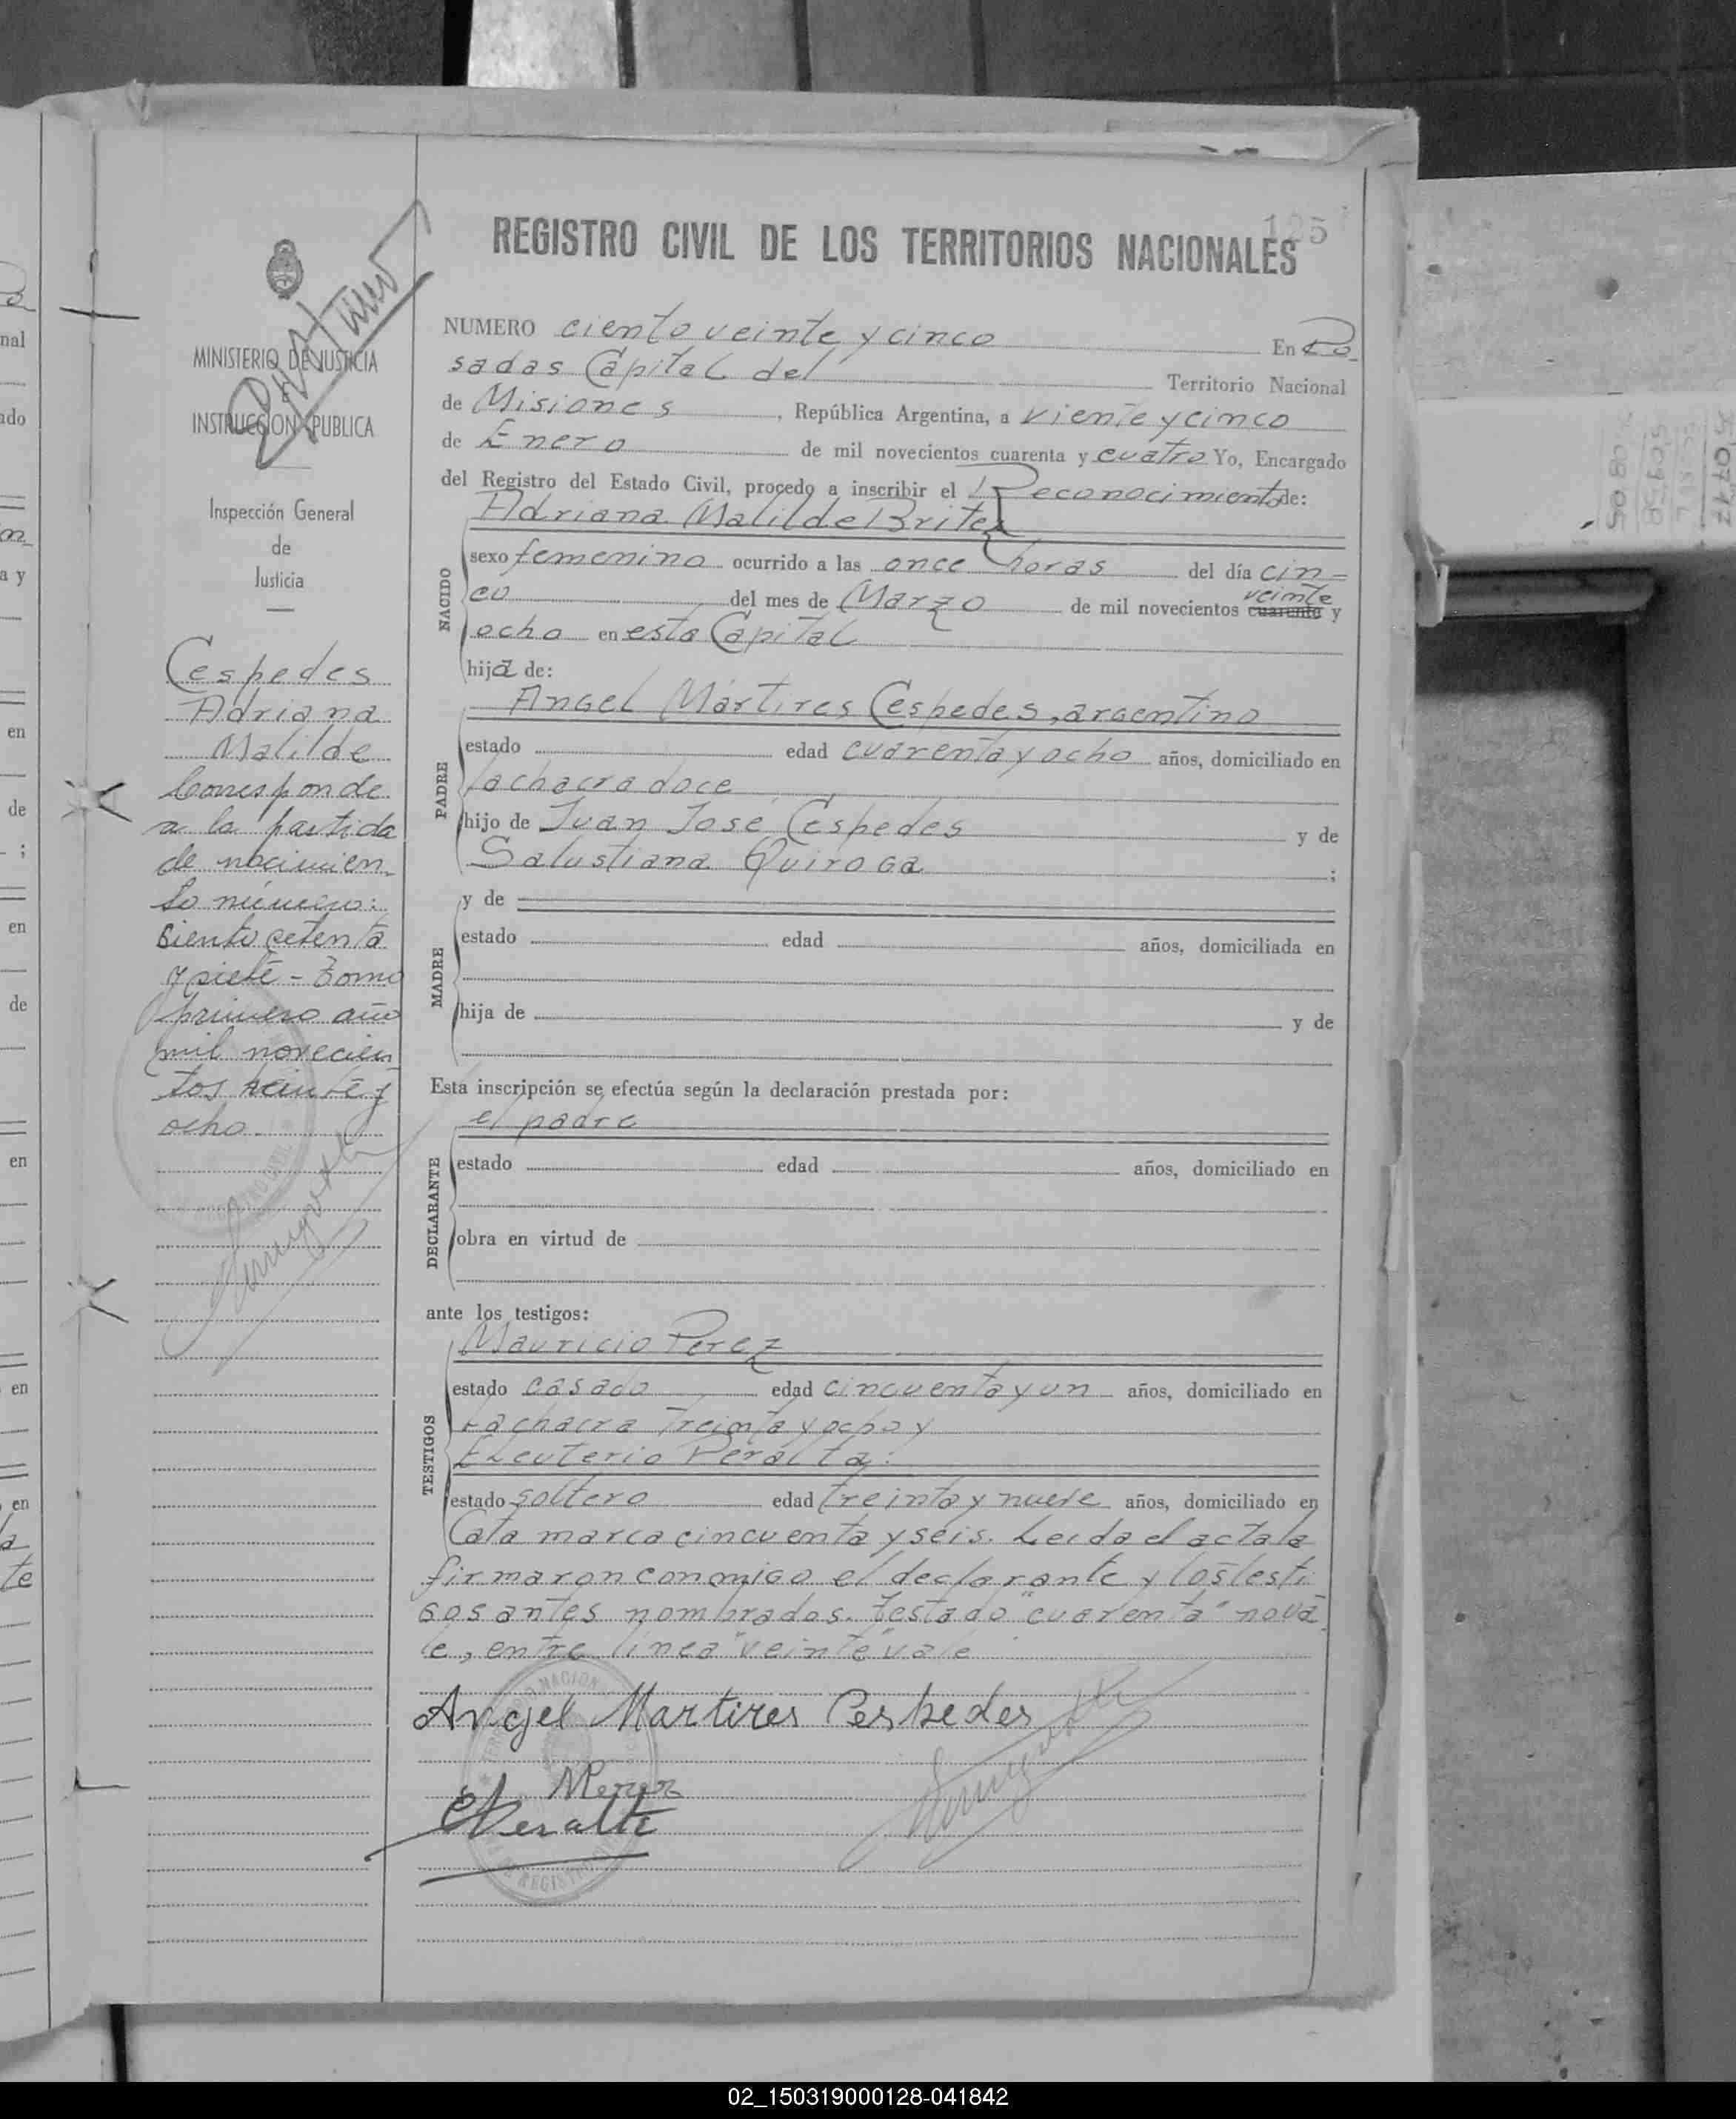 REGISTRO CIVIL DE LOS TERRITORIOS NACIONALES
125
MINISTERIO DE JUSTICIA
E
INSTRUCCION PUBLICA
Inspección General
de
Justicia
Cespedes
Adriana
Matilde
Corresponde
a la partida
de nacimien-
to número:
Siento cetenta
y siete - Tomo
primero año
mil novecien
tos veinte y
ocho.
NUMERO ciento veinte y cinco En Po
sadas Capital del Territorio Nacional
de Misiones, República Argentina, a viente y cinco
de Enero de mil novecientos cuarenta y cuatro Yo, Encargado
del Registro del Estado Civil, procedo a inscribir el Reconocimiento de:
Adriana Matilde Britez
NACIDO
sexo femenino ocurrido a las once horas del día cin-
veinte
co del mes de Marzo de mil novecientos cuarenta y
ocho en esta Capital
hija de:
PADRE
Angel Mártires Cespedes, argentino
estado edad cuarenta y ocho años, domiciliado en
la chacra doce
hijo de Juan José Cespedes y de
Salustiana Quiroga ;
MADRE
y de
estado edad años, domiciliada en
hija de y de
Esta inscripción se efectúa según la declaración prestada por:
DECLARANTE
el padre
estado edad años, domiciliado en
obra en virtud de
ante los testigos:
TESTIGOS
Mauricio Perez
estado casado edad cincuenta y un años, domiciliado en
La chacra treinta y ocho y
Eleuterio Peralta.
estado soltero edad treinta y nueve años, domiciliado en
Catamarca cincuenta y seis. Leida el acta la
firmaron conmigo el declarante y los testi
gos antes nombrados. testado "cuarenta" no va
le, entre linea "veinte" vale
Angel Martires Cespedes
MPerez
EPeralta
02_150319000128-041842